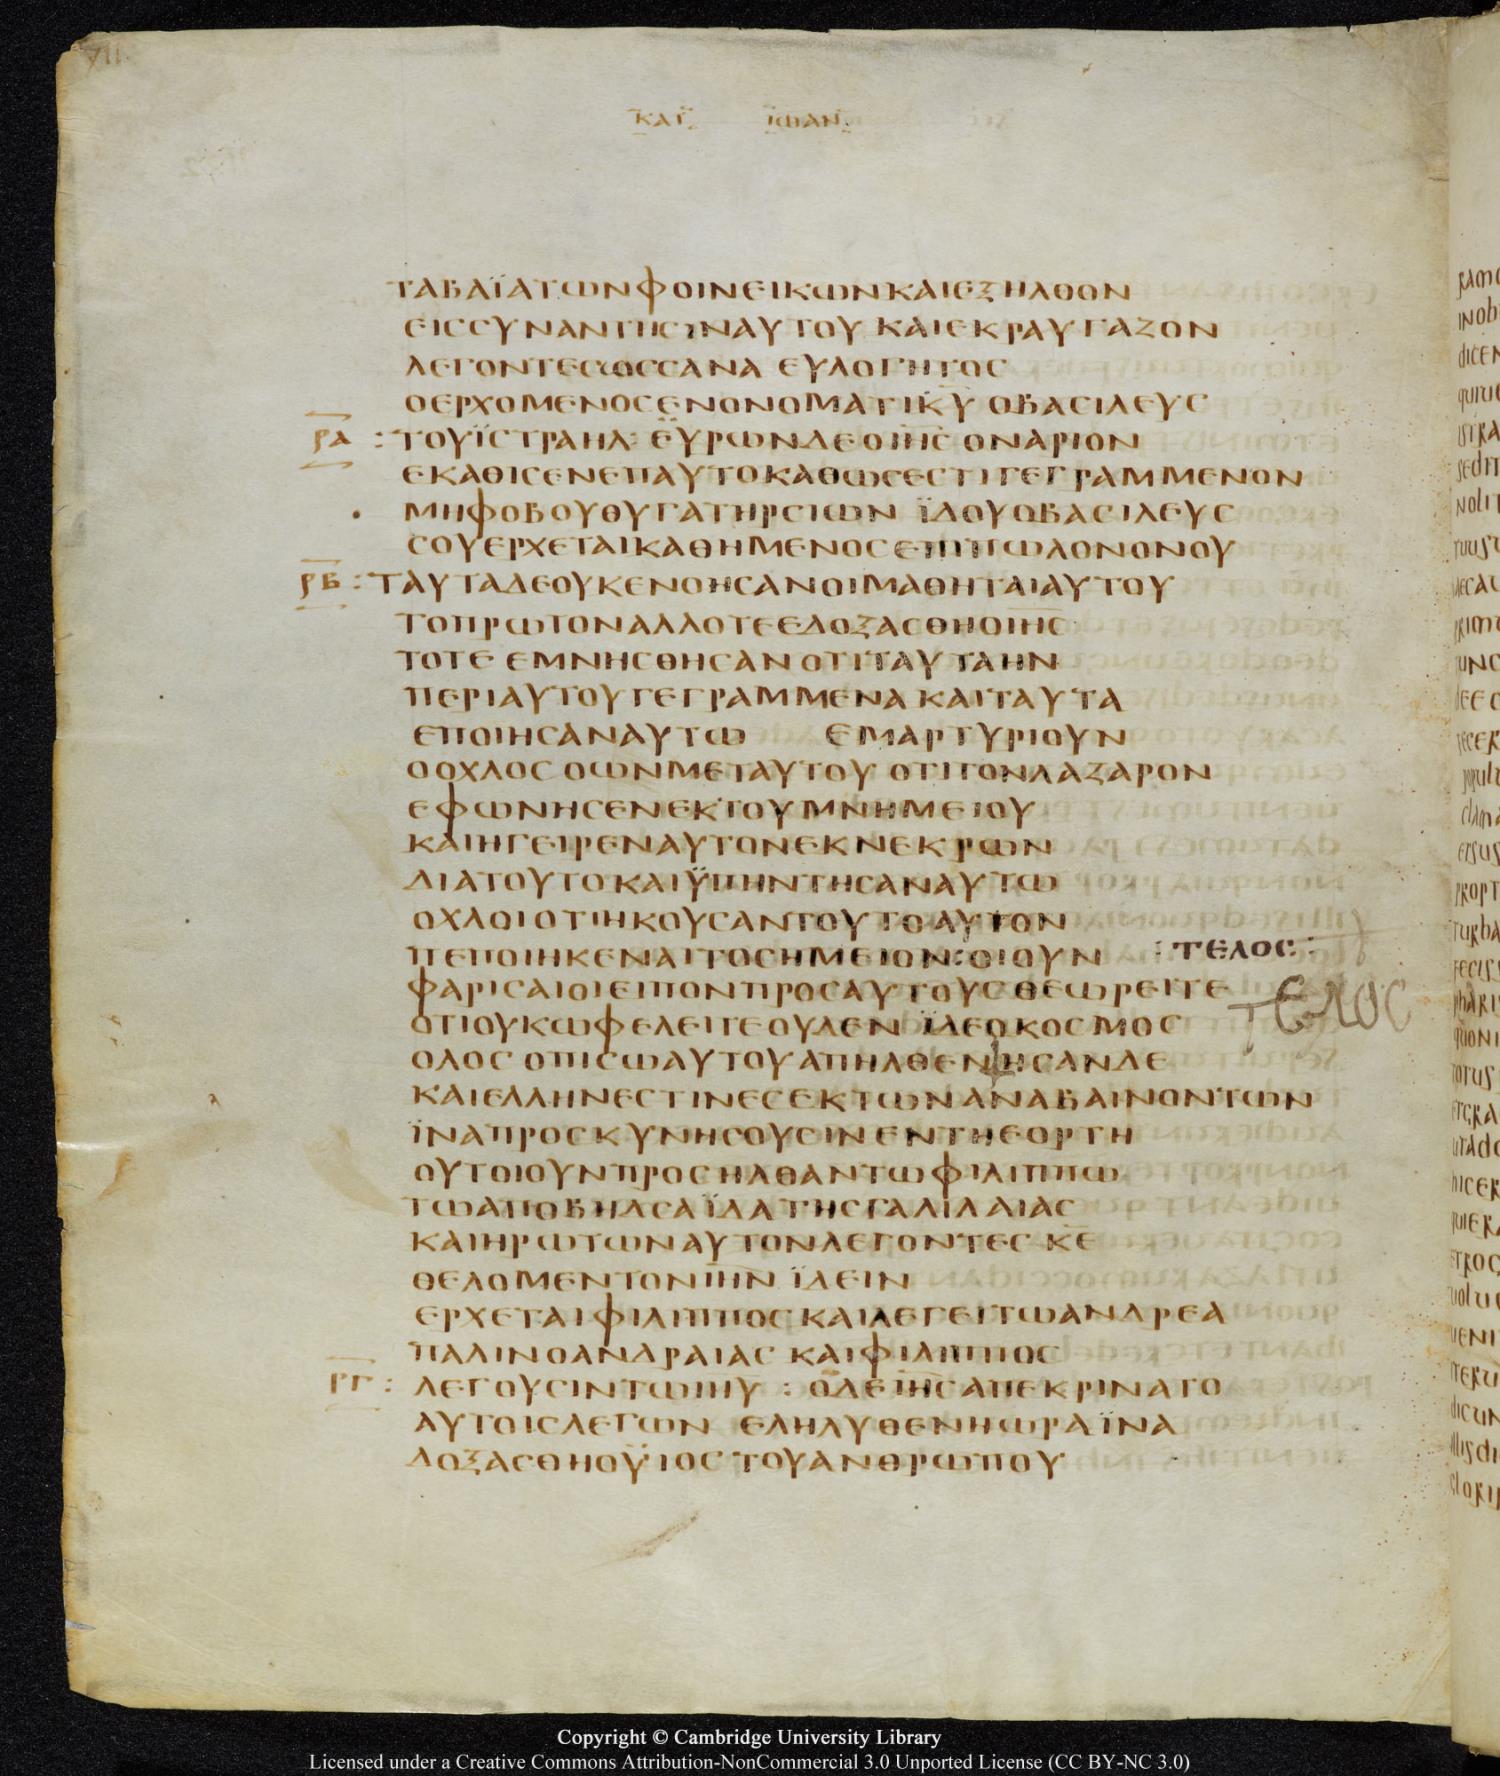 ΚΑΤ ΙΩΑΝ
ΤΑΒΑΪΑΤΩΝΦΟΙΝΕΙΚΩΝΚΑΙΕΞΗΛΘΟΝ
ΕΙΣΣΥΝΑΝΤΗΣΙΝΑΥΤΟΥ ΚΑΙΕΚΡΑΥΓΑΖΟΝ
ΛΕΓΟΝΤΕΣΩΣΣΑΝΑ ΕΥΛΟΓΗΤΟΣ
ΟΕΡΧΟΜΕΝΟΣΕΝΟΝΟΜΑΤΙΚ̅Υ̅ ΟΒΑΣΙΛΕΥΣ
ΡΑ : ΤΟΥΪΣΤΡΑΗΛ· ΕΥΡΩΝΔΕΟΙ̅Η̅Σ̅ ΟΝΑΡΙΟΝ
ΕΚΑΘΙΣΕΝΕΠΑΥΤΟΚΑΘΩΣΕΣΤΙΓΕΓΡΑΜΜΕΝΟΝ
ΜΗΦΟΒΟΥΘΥΓΑΤΗΡΣΙΩΝ ΪΔΟΥΟΒΑΣΙΛΕΥΣ
ΣΟΥΕΡΧΕΤΑΙΚΑΘΗΜΕΝΟΣΕΠΙΠΩΛΟΝΟΝΟΥ
ΡΒ : ΤΑΥΤΑΔΕΟΥΚΕΝΟΗΣΑΝΟΙΜΑΘΗΤΑΙΑΥΤΟΥ
ΤΟΠΡΩΤΟΝΑΛΛΟΤΕΕΔΟΞΑΣΘΗΟΙ̅Η̅Σ̅
ΤΟΤΕ ΕΜΝΗΣΘΗΣΑΝ ΟΤΙΤΑΥΤΑΗΝ
ΠΕΡΙΑΥΤΟΥΓΕΓΡΑΜΜΕΝΑ ΚΑΙΤΑΥΤΑ
ΕΠΟΙΗΣΑΝΑΥΤΩ ΕΜΑΡΤΥΡΙΟΥΝ
ΟΟΧΛΟΣ ΟΩΝΜΕΤΑΥΤΟΥ ΟΤΙΤΟΝΛΑΖΑΡΟΝ
ΕΦΩΝΗΣΕΝΕΚΤΟΥΜΝΗΜΕΙΟΥ
ΚΑΙΗΓΕΙΡΕΝΑΥΤΟΝΕΚΝΕΚΡΩΝ
ΔΙΑΤΟΥΤΟΚΑΙΫΠΗΝΤΗΣΑΝΑΥΤΩ
ΟΧΛΟΙΟΤΙΗΚΟΥΣΑΝΤΟΥΤΟΑΥΤΟΝ
ΠΕΠΟΙΗΚΕΝΑΙΤΟΣΗΜΕΙΟΝ:ΟΙΟΥΝ : ΤΕΛΟΣ :
ΦΑΡΙΣΑΙΟΙΕΙΠΟΝΠΡΟΣΑΥΤΟΥΣΘΕΩΡΕΙΤΕ ΤΕΛΟΣ
ΟΤΙΟΥΚΩΦΕΛΕΙΤΕΟΥΔΕΝ ΪΔΕΟΚΟΣΜΟΣ
ΟΛΟΣ ΟΠΙΣΩΑΥΤΟΥΑΠΗΛΘΕΝΗΣΑΝΔΕ
ΚΑΙΕΛΛΗΝΕΣΤΙΝΕΣΕΚΤΩΝΑΝΑΒΑΙΝΟΝΤΩΝ
ΪΝΑΠΡΟΣΚΥΝΗΣΟΥΣΙΝ ΕΝΤΗΕΟΡΤΗ
ΟΥΤΟΙΟΥΝΠΡΟΣΗΛΘΑΝΤΩΦΙΛΙΠΠΩ
ΤΩΑΠΟΒΗΔΣΑΪΔΑΤΗΣΓΑΛΙΛΑΙΑΣ
ΚΑΙΗΡΩΤΩΝΑΥΤΟΝΛΕΓΟΝΤΕΣ Κ̅Ε̅
ΘΕΛΟΜΕΝΤΟΝΙ̅Η̅Ν̅ ΪΔΕΙΝ
ΕΡΧΕΤΑΙΦΙΛΙΠΠΟΣΚΑΙΛΕΓΕΙΤΩΑΝΔΡΕΑ
ΠΑΛΙΝΟΑΝΔΡΑΙΑΣ ΚΑΙΦΙΛΙΠΠΟΣ
ΡΓ : ΛΕΓΟΥΣΙΝΤΩΙ̅Η̅Υ̅ : ΟΔΕΙ̅Η̅Σ̅ΑΠΕΚΡΙΝΑΤΟ
ΑΥΤΟΙΣΛΕΓΩΝ ΕΛΗΛΥΘΕΝΗΩΡΑΪΝΑ
ΔΟΞΑΣΘΗΟΫΙΟΣΤΟΥΑΝΘΡΩΠΟΥ
Copyright © Cambridge University Library
Licensed under a Creative Commons Attribution-NonCommercial 3.0 Unported License (CC BY-NC 3.0)